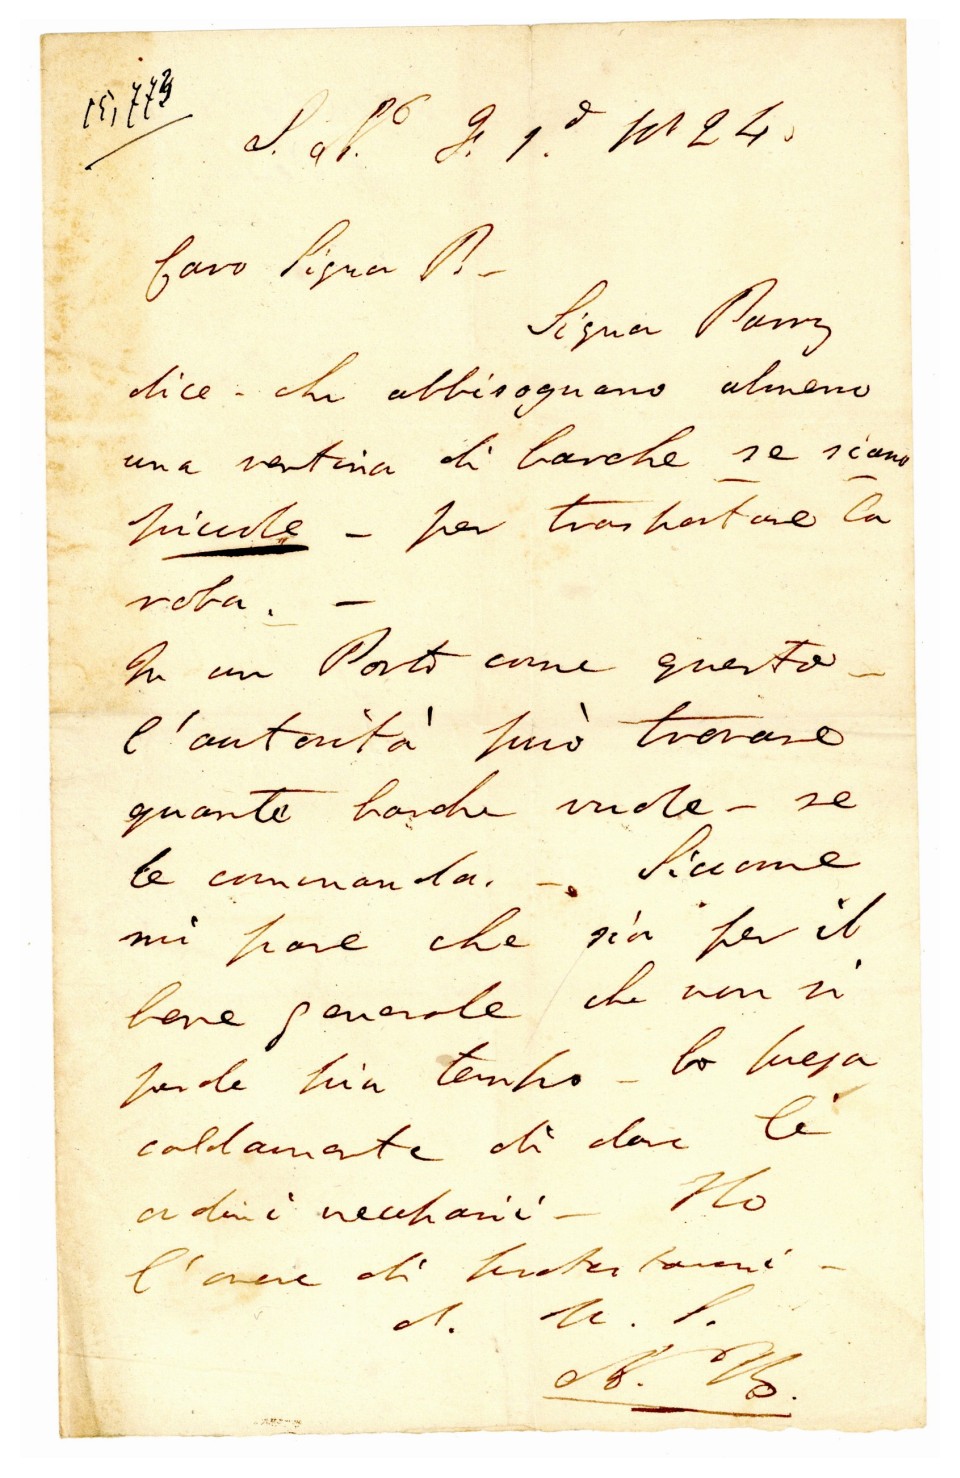 15,773
S. N.º F. 1.º 1824.
Caro Signor P. –
Signor Parry
dice – che abbisognano almeno
una ventina di barche se siano
piccole – per trasportare la
roba. –
In un Porto come questo –
l'autorità può trovare
quante barche vuole – se
le commanda. – Siccome
mi pare che sia per il
bene generale che non si
perde più tempo – lo prego
caldamente di dare li
ordini necessarii – Ho
l'onore di protestarmi –
N. B.